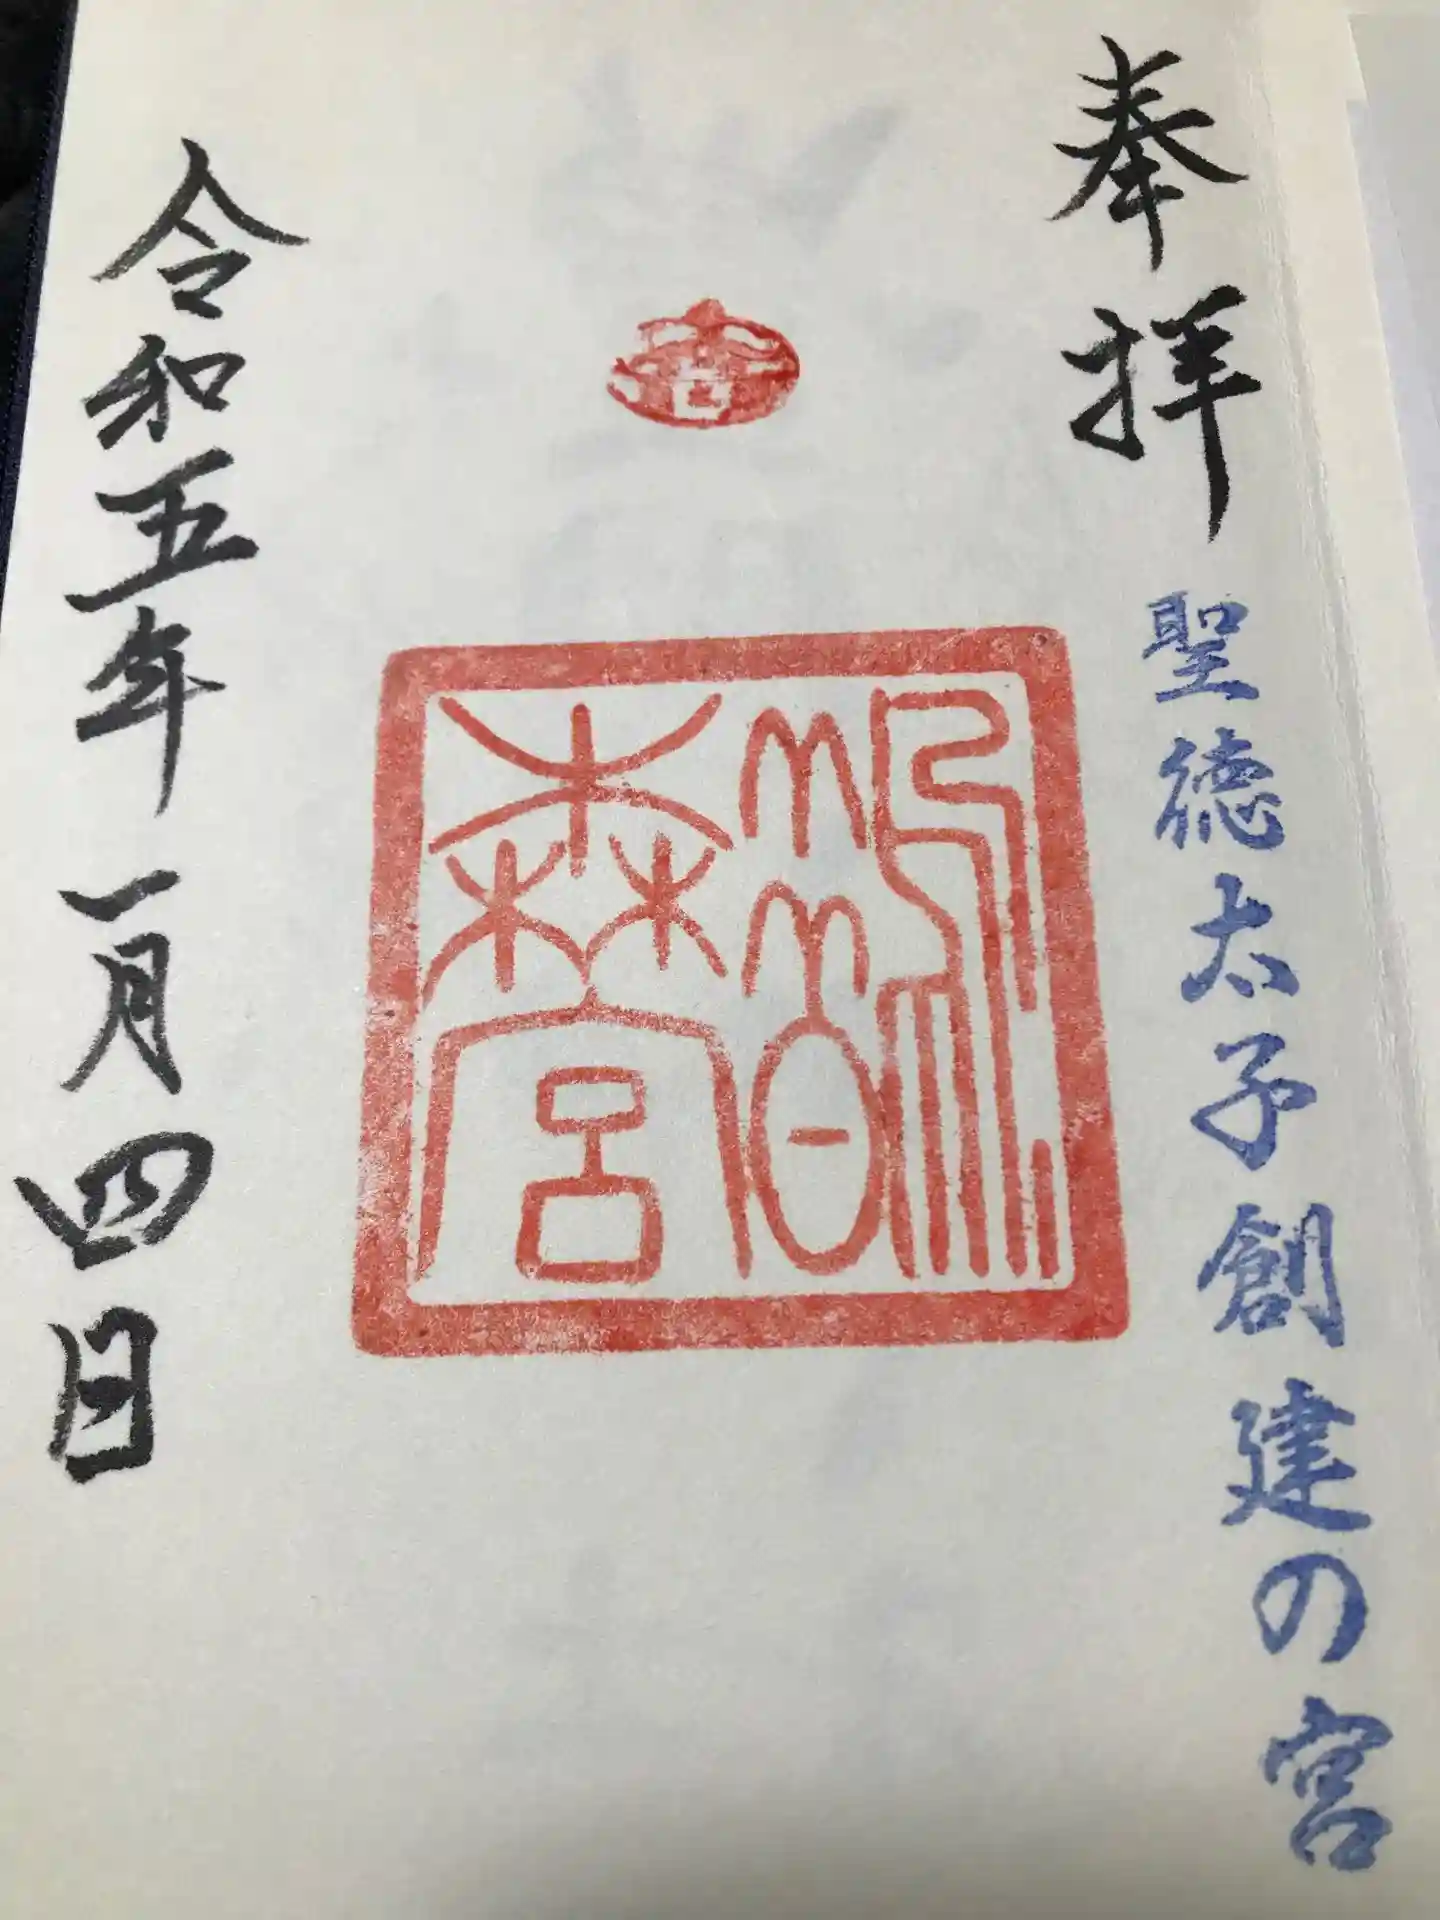 奉拝
聖徳太子創建の宮
鵲
森宮
令和五年一月四日